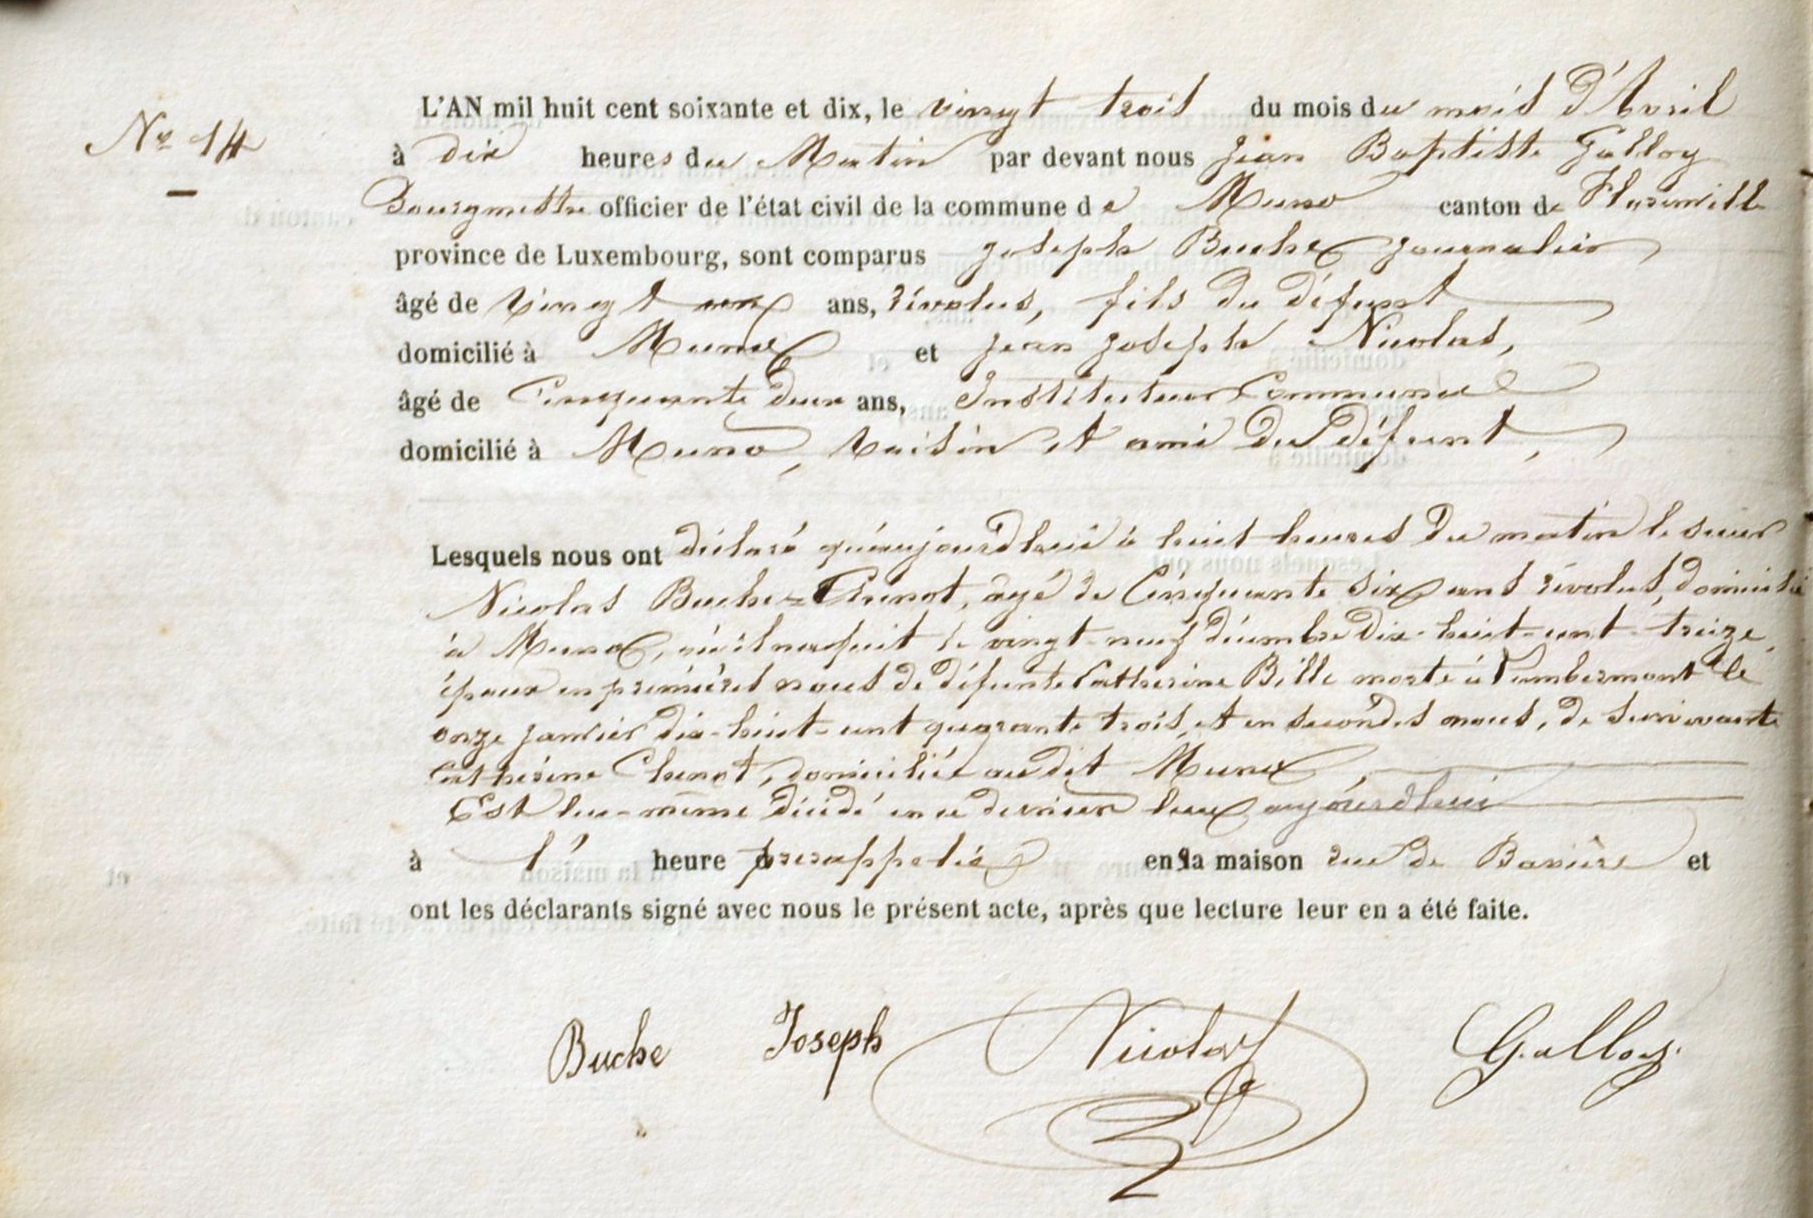 N° 14
L'AN mil huit cent soixante et dix, le vingt trois du mois du mois d'Avril
à dix heures du Matin par devant nous Jean Baptiste Galloy
Bourgmestre officier de l'état civil de la commune de Muno canton de Florenville
province de Luxembourg, sont comparus Joseph Buche journalier
âgé de vingt ans, révolus, fils du défunt
domicilié à Muno et Jean Joseph Nicolas,
âgé de Cinquante deux ans, Instituteur Communal
domicilié à Muno, voisin et ami du défunt,
Lesquels nous ont déclaré qu'aujourd'hui à huit heures du matin le sieur
Nicolas Buche-Chenot, âgé de Cinquante six ans révolus, domicilié
à Muno, où il naquit le vingt-neuf décembre dix-huit-cent-treize,
époux en premières noces de défunte Catherine Bille morte à le
onze janvier dix-huit-cent quarante trois, et en secondes noces, de survivante
Catherine Chenot, domiciliée au dit Muno,
Est lui-même décédé en ce dernier lieu aujourd'hui
à l' heure prérappelée en sa maison rue de et
ont les déclarants signé avec nous le présent acte, après que lecture leur en a été faite.
Buche Joseph Nicolas Galloy